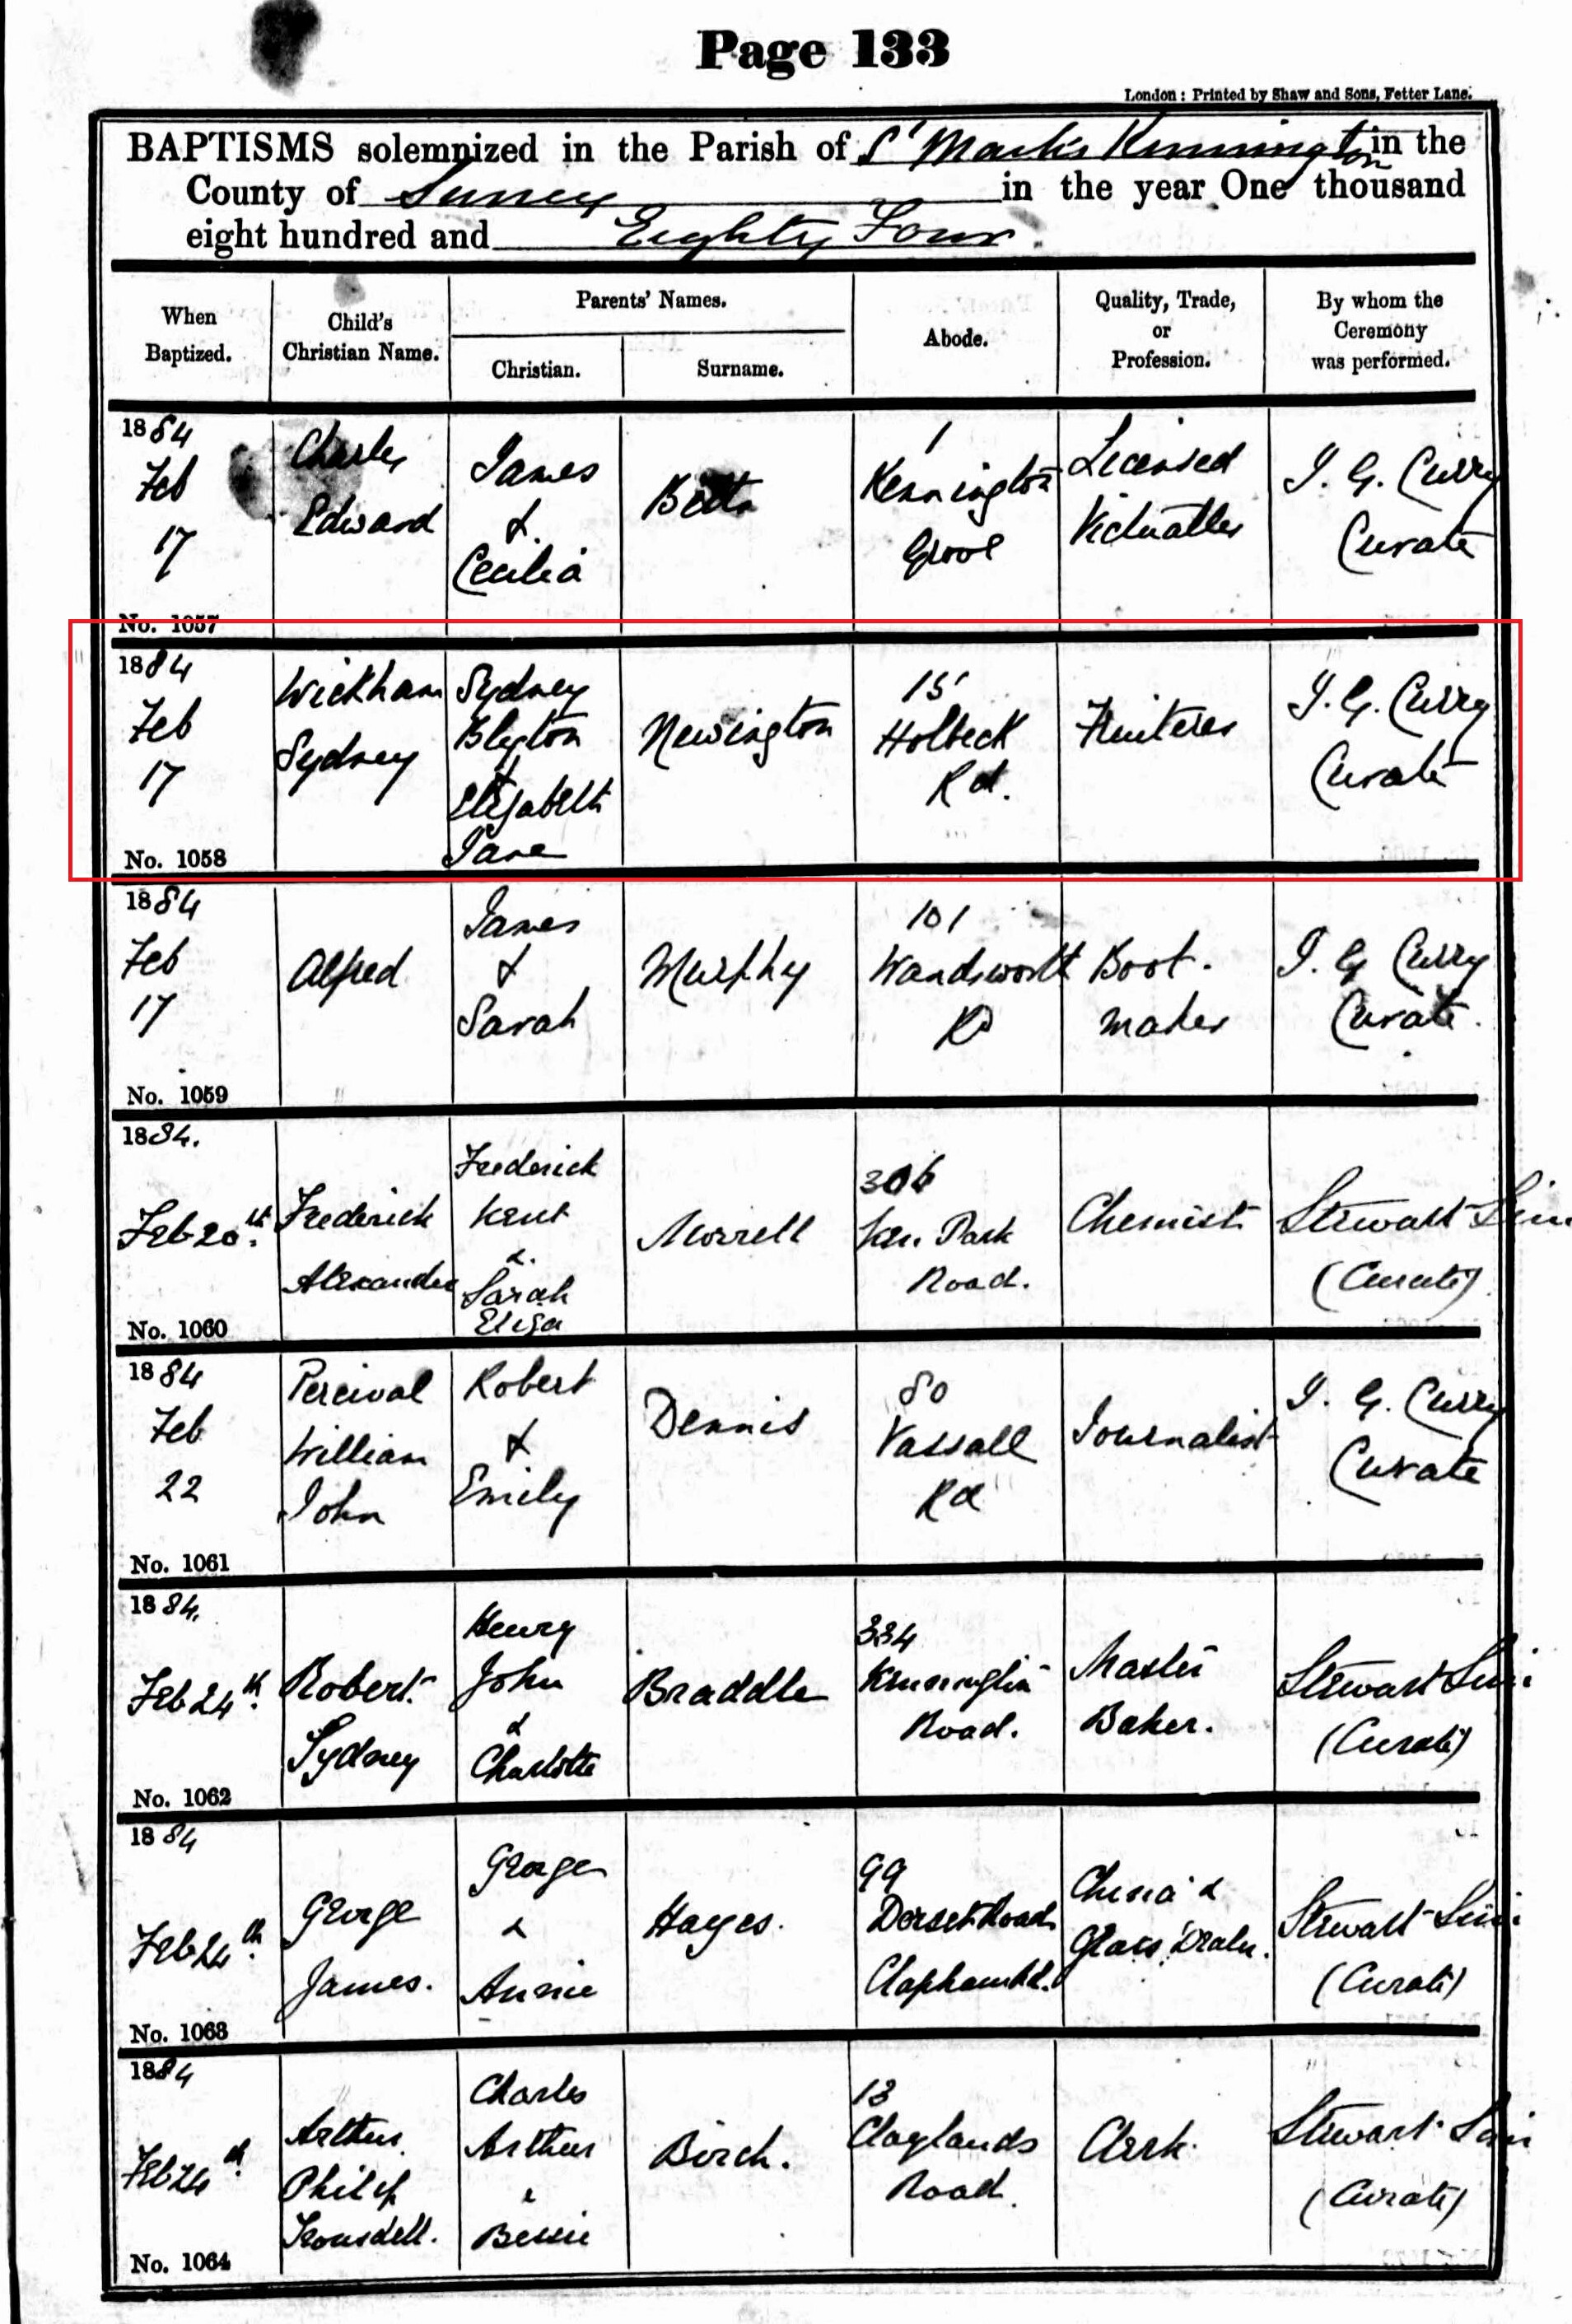 Page 133
London: Printed by Shaw and Sons, Fetter Lane.
BAPTISMS solemnized in the Parish of St Mark's Kennington in the
County of Surrey in the year One thousand
eight hundred and Eighty Four
When Baptized.
Child's Christian Name.
Parents' Names.
Christian.
Surname.
Abode.
Quality, Trade, or Profession.
By whom the Ceremony was performed.
1884
Feb
17
No. 1057
Charles
Edward
James
&
Cecilia
1
Kennington
Grove
Licensed
Victualler
J. G. Curry
Curate
1884
Feb
17
No. 1058
Wickham
Sydney
Sydney
Blyton
&
Elizabeth
Jane
Newington
15
Holbeck
Rd.
Fruiterer
J. G. Curry
Curate
1884
Feb
17
No. 1059
Alfred
James
&
Sarah
Murphy
101
Wandsworth
Rd
Boot-
maker
J. G Curry
Curate.
1884.
Feb 20th.
No. 1060
Frederick
Alexander
Frederick
Kent
&
Sarah
Eliza
306
Ken. Park
Road.
Chemist
Stewart
(Curate)
1884
Feb
22
No. 1061
Percival
William
John
Robert
&
Emily
Dennis
80
Vassall
Rd
Journalist
J. G. Curry
Curate
1884.
Feb 24th.
No. 1062
Robert
Sydney
Henry
John
&
Charlotte
Braddle
334
Kennington
Road.
Master
Baker.
Stewart
(Curate)
1884
Feb 24th.
No. 1063
George
James.
George
&
Annie
Hayes.
99
Dorset Road
Clapham Rd.
China &
Glass Dealer.
Stewart
(Curate)
1884
Feb 24th.
No. 1064
Arthur
Philip
Charles
Arthur
&
Bessie
Birch.
13
Claylands
Road.
Clerk.
Stewart
(Curate)